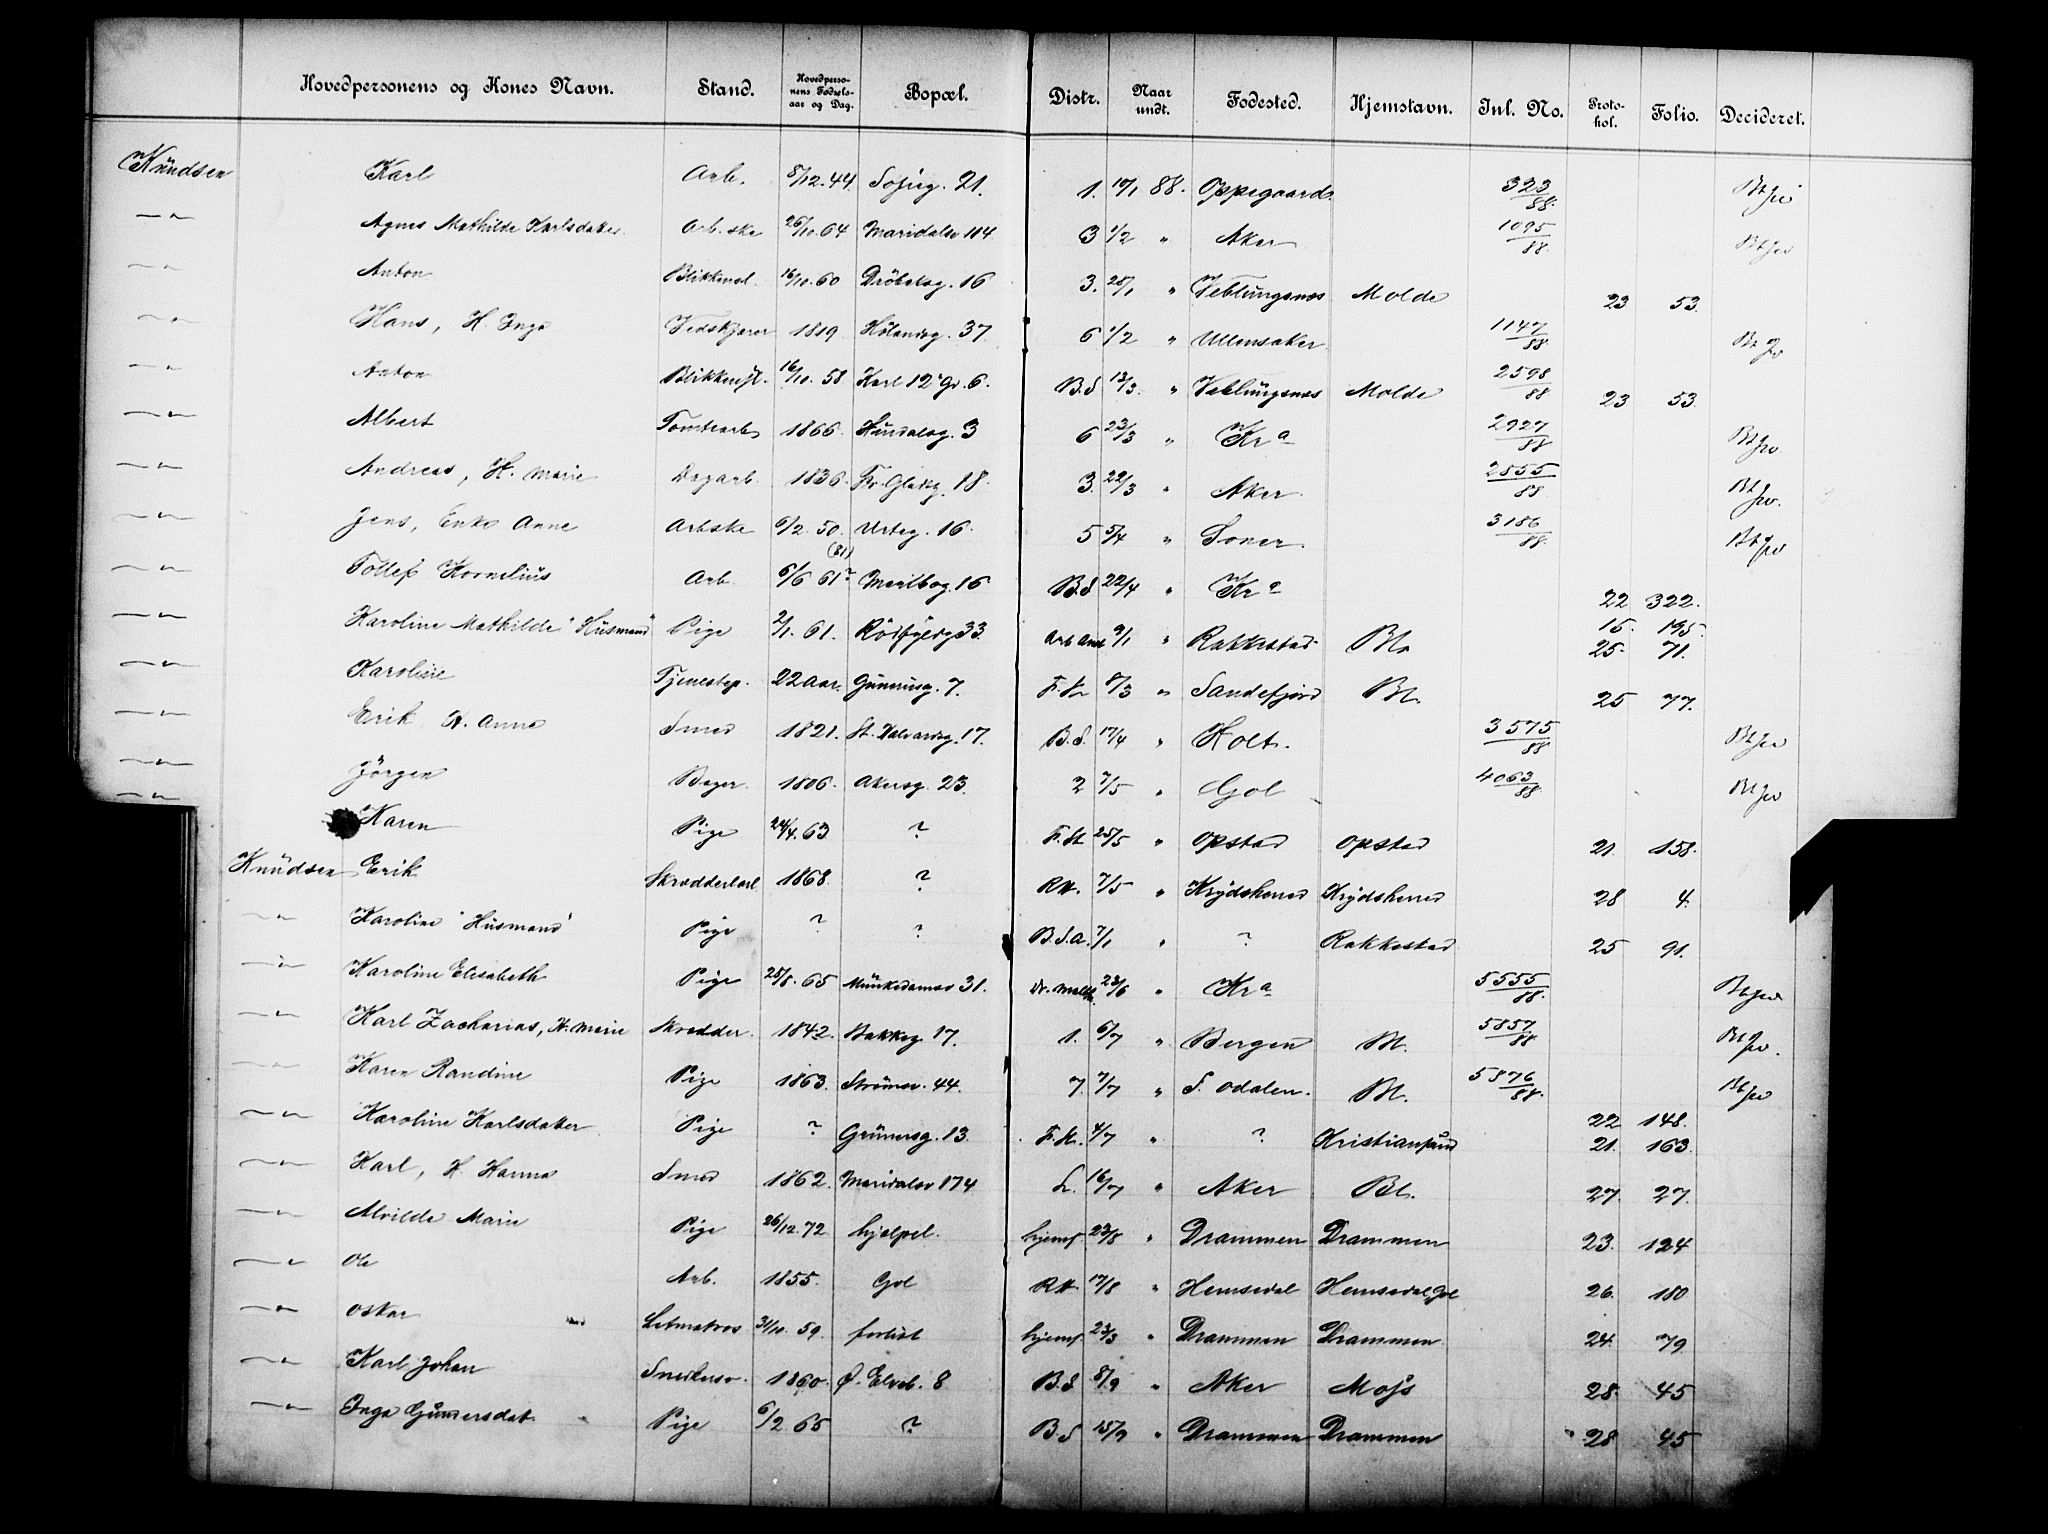 Hovedpersonens og Kones Navn. Stand. Hovedpersonens Fødselsaar og Dag. Bopæl. Distr. Naar undt. Fødested. Hjemstavn. Inl. No. Protokol. Folio. Decideret.
Knudsen Karl Arb. 8/12.44. Sofieg. 21. 1. 10/1 88. Oppegaard. 323/88.
—"— Agnes Mathilde Karlsdatter Arb.ske 26/10.64 Maridalsv 114 3 1/2 " Aker 1095/88.
—"— Anton Blikkensl. 16/10.60 Dröbaksg. 16 3. 28/1 " Veblungsnes Molde 23 53.
—"— Hans, H. Inga Vedskjærer 1819 Hölandsg. 37 6 1/2 " Ullensaker 1147/88
—"— Anton Blikkensl. 16/10.58 Karl 12' Gd. 6. B.S 13/3. " Veblungsnes Molde 2598/88 23 53.
—"— Albert Tomtearb 1866. 3 6 23/3 " Kra 2927/88
—"— Andreas, H. Marie Dagarb. 1836. Fr. Gladsg. 18. 3. 22/3 " Aker. 2855/88
—"— Jens, Enke Anne Arbske 6/2.50. Urteg. 16. 5 5/4 " Soner. 3186/88.
—"— Tollef Kornelius Arb. 6/6 61? (81) 16 B.S 22/4 " Kra 22 322.
—"— Karoline Mathilde "Husmand" Pige 2/1.61. Rödfyldg 33 9/1 " Rakkestad Bl. 15. 195. 25. 71.
—"— Karoline Tjenestep. 22 Aar. Gunnerusg. 7. F.K 8/3 " Sandefjord Bl. 25 77.
—"— Erik H. Anne Smed 1821. St. Halvardsg. 17. B.S. 17/4 " Holt. 3575/88
—"— Jörgen Bager. 1806. Akersg. 23. 2 7/5 " Gol 4063/88
—"— Karen Pige 24/4.63 ? F.K 25/5 " Opstad Opstad 21. 158.
Knudsen Erik Skrædderlærl 1868. ? RK. 7/5 " Krydsherred Krydsherred 28 4.
—"— Karoline "Husmand" Pige ? ? B.S.A. 7/1 " ? Rakkestad 25 91.
—"— Karoline Elisabeth Pige 25/8.65 Munkedamsv 31. 23/6 " Kra 5555/88.
—"— Karl Zacharias, H. Marie Skrædder. 1842. Bakkeg 17. 1. 6/7 " Bergen Bl. 5857/88
—"— Karen Randine Pige 1863. Strömsv. 44. 7. 7/7 " S. Odalen. Bl. 5876/88.
—"— Karoline Karlsdatter Pige ? Grünersg. 13. F.K. 4/7 " ? Kristiansund 22 148. 21. 163.
—"— Karl, H. Hanna Smed 1862. Maridalsv 174 S. 16/7 " Aker Bl. 27. 27.
—"— Alvilde Marie Pige 26/12.72. hjelpel. hjemf. 23/8 " Drammen Drammen 23. 124
—"— Ole Arb. 1855. Gol RK. 17/8 " Hemsedal Hemsedal Gol 26. 180
—"— Oskar Letmatros 31/10.59. forlist hjemf. 23/3 " Drammen Drammen. 24. 79.
—"— Karl Johan Snedkersv. 1860. Ø. Elveb. 8 B.S 8/9 " Aker Moss 28. 45
—"— Inga Gunersdat. Pige 6/2.65 ? B.S 15/9 " Drammen Drammen 28 45